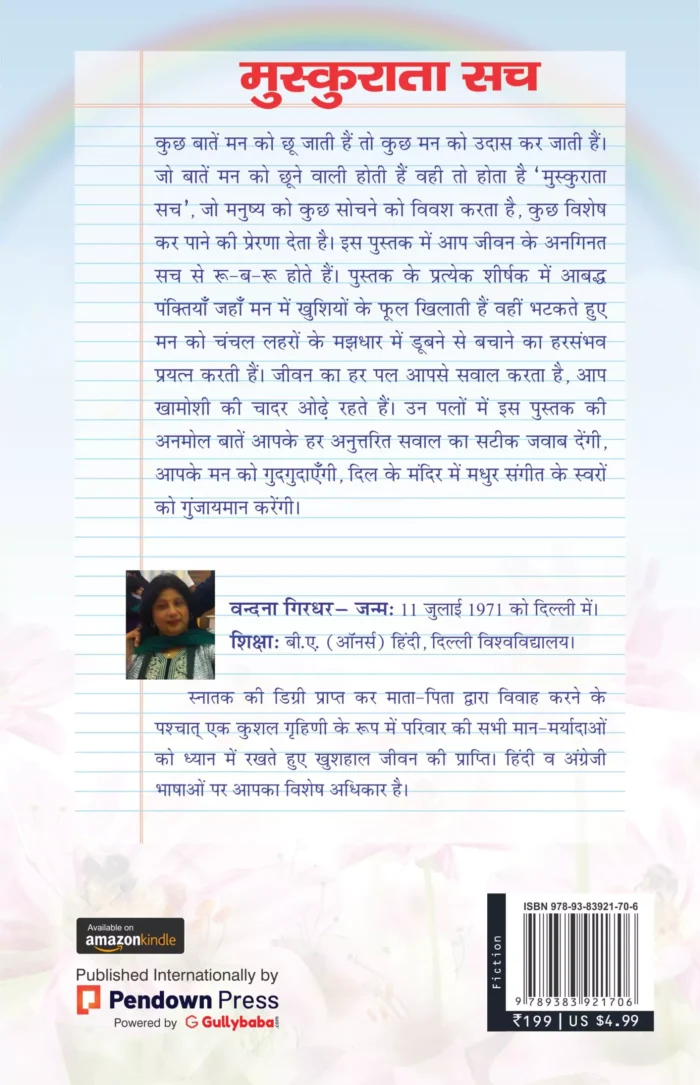 मुस्कुराता सच
कुछ बातें मन को छू जाती हैं तो कुछ मन को उदास कर जाती हैं।
जो बातें मन को छूने वाली होती हैं वही तो होता है ‘मुस्कुराता
सच’, जो मनुष्य को कुछ सोचने को विवश करता है, कुछ विशेष
कर पाने की प्रेरणा देता है। इस पुस्तक में आप जीवन के अनगिनत
सच से रू-ब-रू होते हैं। पुस्तक के प्रत्येक शीर्षक में आबद्ध
पंक्तियाँ जहाँ मन में खुशियों के फूल खिलाती हैं वहीं भटकते हुए
मन को चंचल लहरों के मझधार में डूबने से बचाने का हरसंभव
प्रयत्न करती हैं। जीवन का हर पल आपसे सवाल करता है, आप
खामोशी की चादर ओढ़े रहते हैं। उन पलों में इस पुस्तक की
अनमोल बातें आपके हर अनुत्तरित सवाल का सटीक जवाब देंगी,
आपके मन को गुदगुदाएँगी, दिल के मंदिर में मधुर संगीत के स्वरों
को गुंजायमान करेंगी।
वन्दना गिरधर– जन्म: 11 जुलाई 1971 को दिल्ली में।
शिक्षा: बी.ए. (ऑनर्स) हिंदी, दिल्ली विश्वविद्यालय।
स्नातक की डिग्री प्राप्त कर माता-पिता द्वारा विवाह करने के
पश्चात् एक कुशल गृहिणी के रूप में परिवार की सभी मान-मर्यादाओं
को ध्यान में रखते हुए खुशहाल जीवन की प्राप्ति। हिंदी व अंग्रेजी
भाषाओं पर आपका विशेष अधिकार है।
Available on
amazonkindle
Published Internationally by
Pendown Press
Powered by G Gullybaba.com
Fiction
ISBN 978-93-83921-70-6
9 789383 921706
₹199 | US $4.99